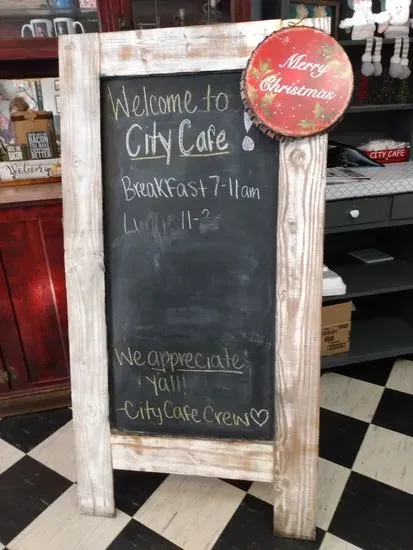 Merry
Christmas
Welcome to
City Cafe!
Breakfast 7-11am
Lunch 11-2
We appreciate
yall!
-City Cafe Crew♡
CITY CAFE
Welcome
BACON